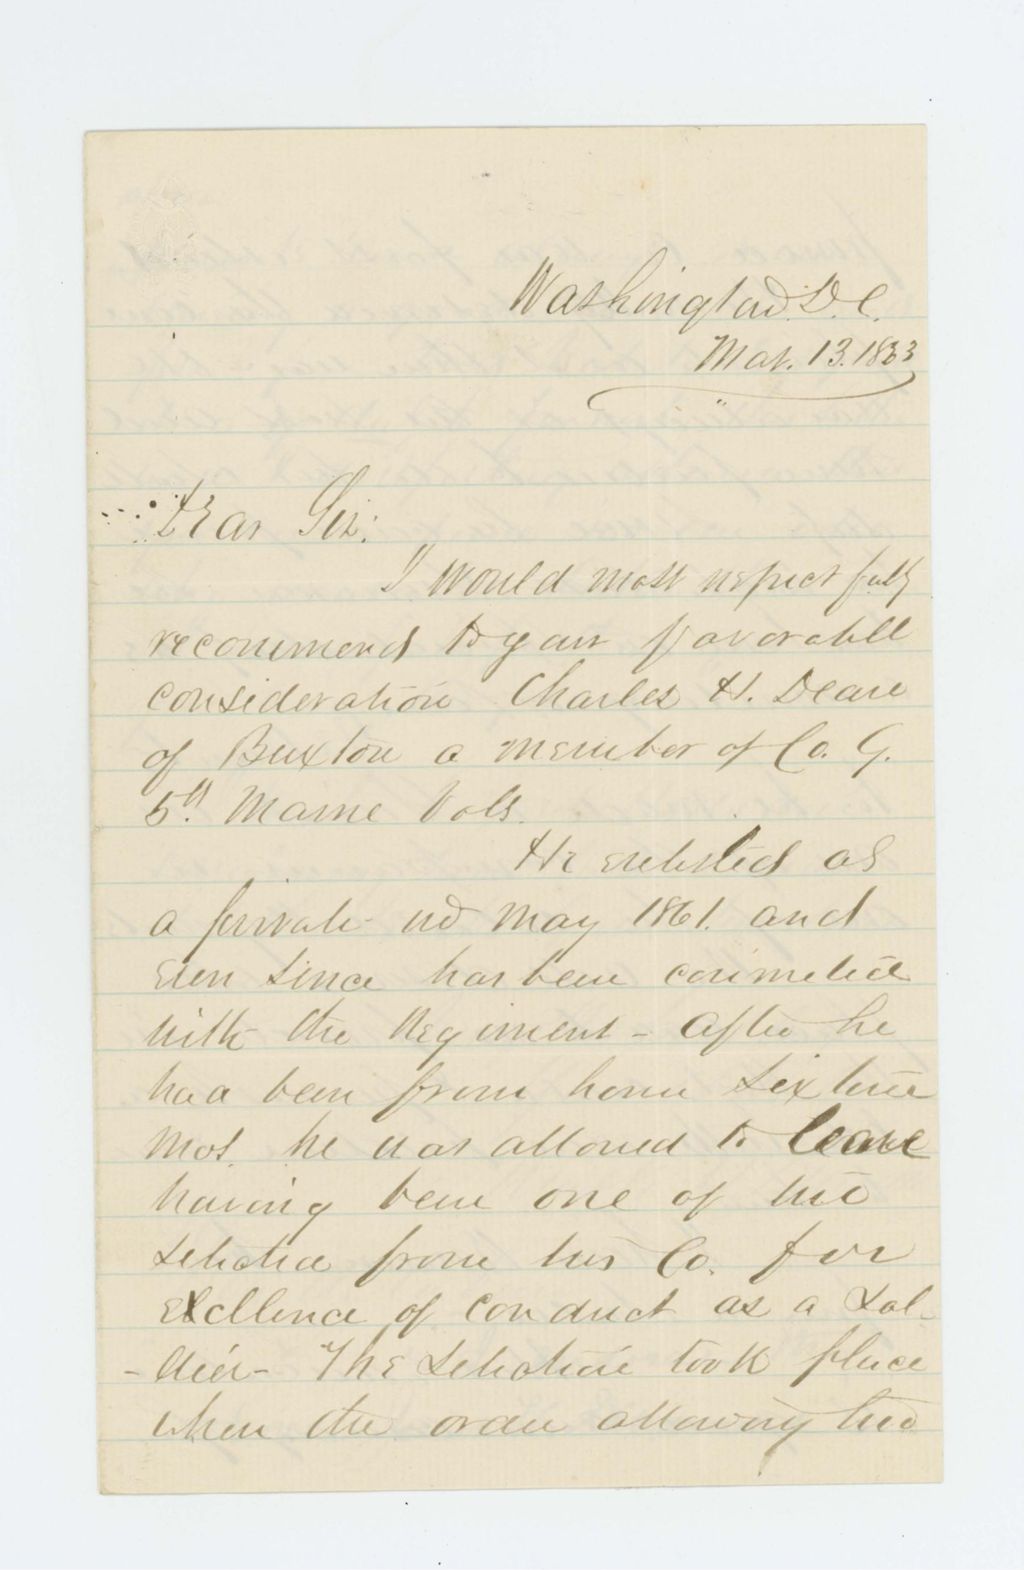 Washington D.C.
Mar. 13. 1863
Dear Sir:
I would most respectfully
recommend to your favorable
consideration Charles H. Deare
of Buxton a member of Co. G.
5th Maine Vols.
He enlisted as
a private in May 1861. and
ever since has been connected
with the Regiment - After he
had been from home sixteen
mos. he was allowed to leave
having been one of two
selected from his Co. for
excellence of conduct as a sol-
-dier - The selection took place
when the order allowing two